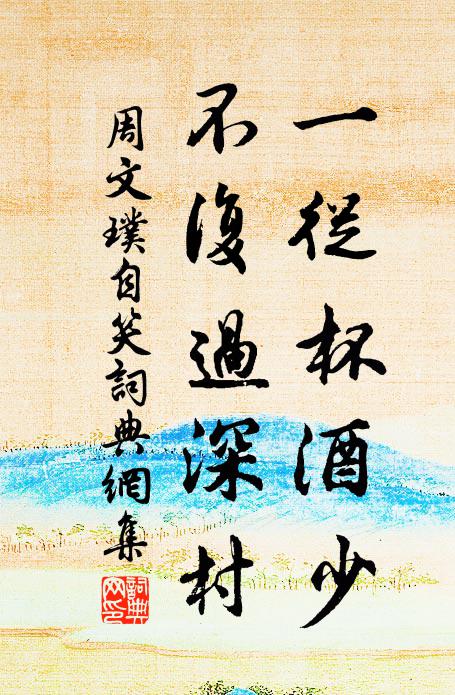 一從杯酒少
不復過深村
周文璞自笑詞典網集
詞典
网印